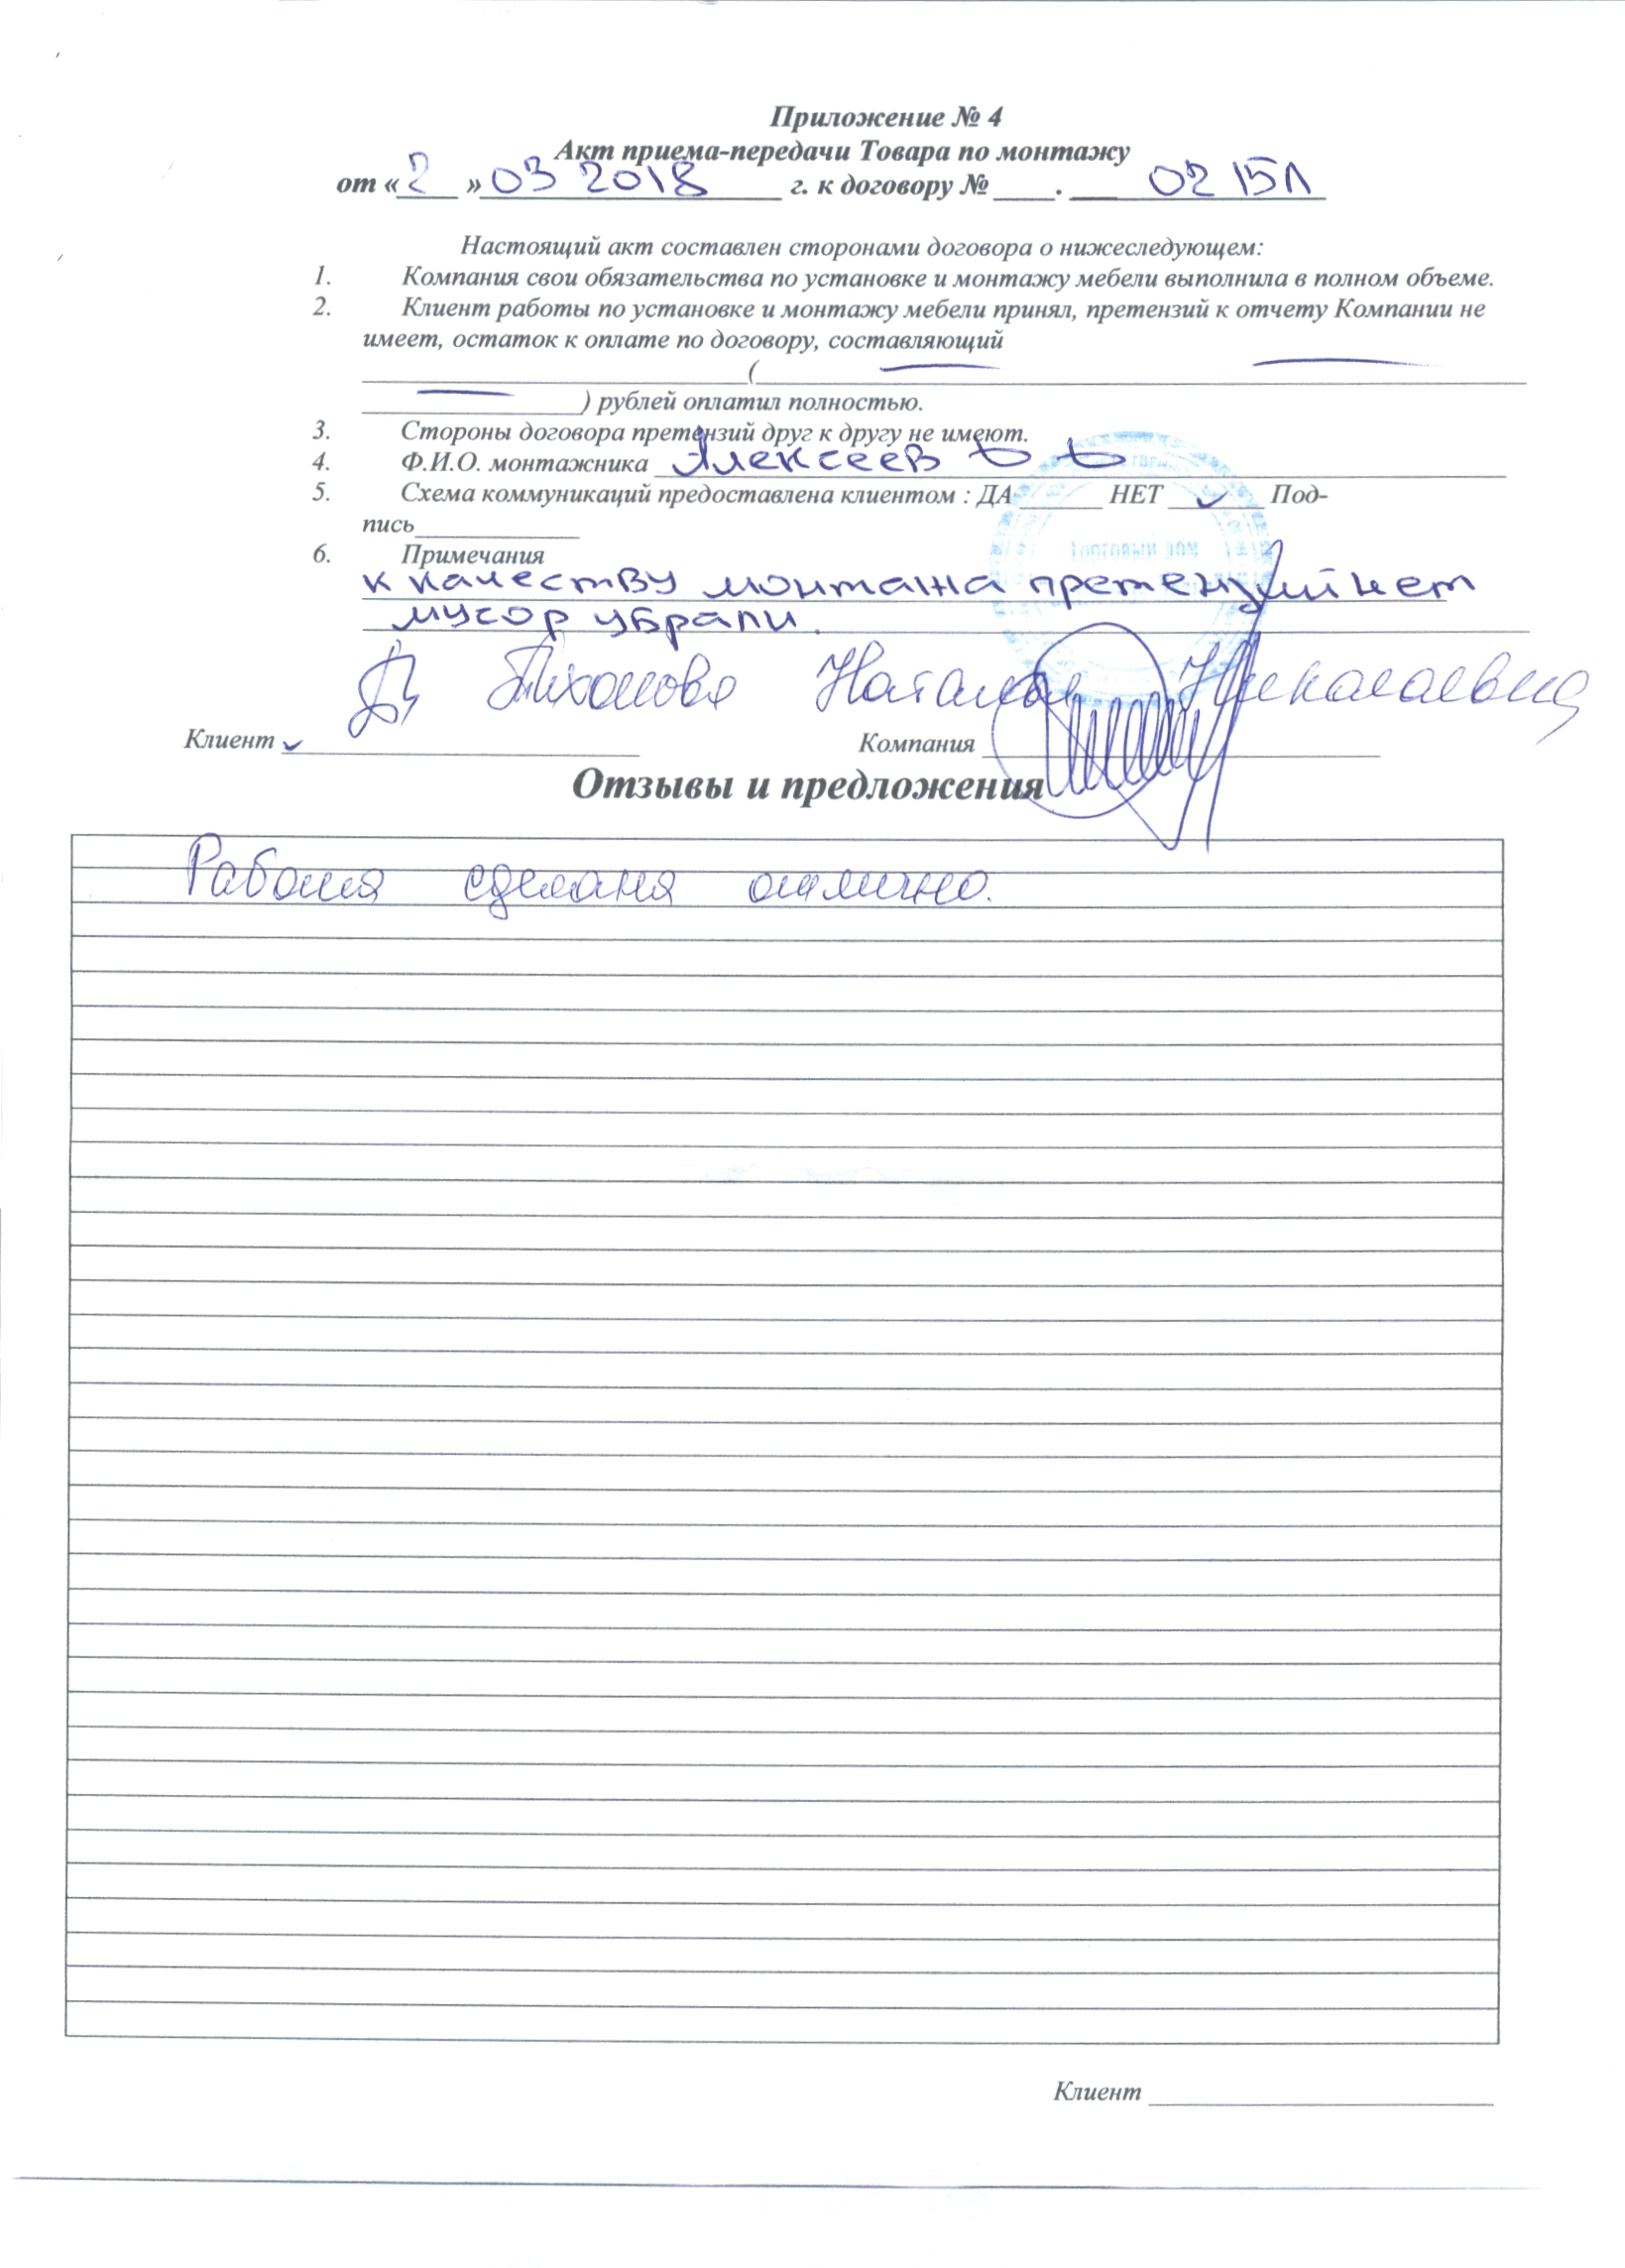 Приложение № 4
Акт приема-передачи Товара по монтажу
от « 2 » 03 2018 г. к договору № ____. 0215Л
Настоящий акт составлен сторонами договора о нижеследующем:
1. Компания свои обязательства по установке и монтажу мебели выполнила в полном объеме.
2. Клиент работы по установке и монтажу мебели принял, претензий к отчету Компании не
имеет, остаток к оплате по договору, составляющий
(
) рублей оплатил полностью.
3. Стороны договора претензий друг к другу не имеют.
4. Ф.И.О. монтажника Алексеев
5. Схема коммуникаций предоставлена клиентом : ДА ______ НЕТ ______ Под-
пись
6. Примечания
Торговый дом
к качеству монтажа претензий нет
мусор убрали.
Тихонова Наталья Николаевна
Клиент Компания
Отзывы и предложения
Работа сделана отлично.
Клиент